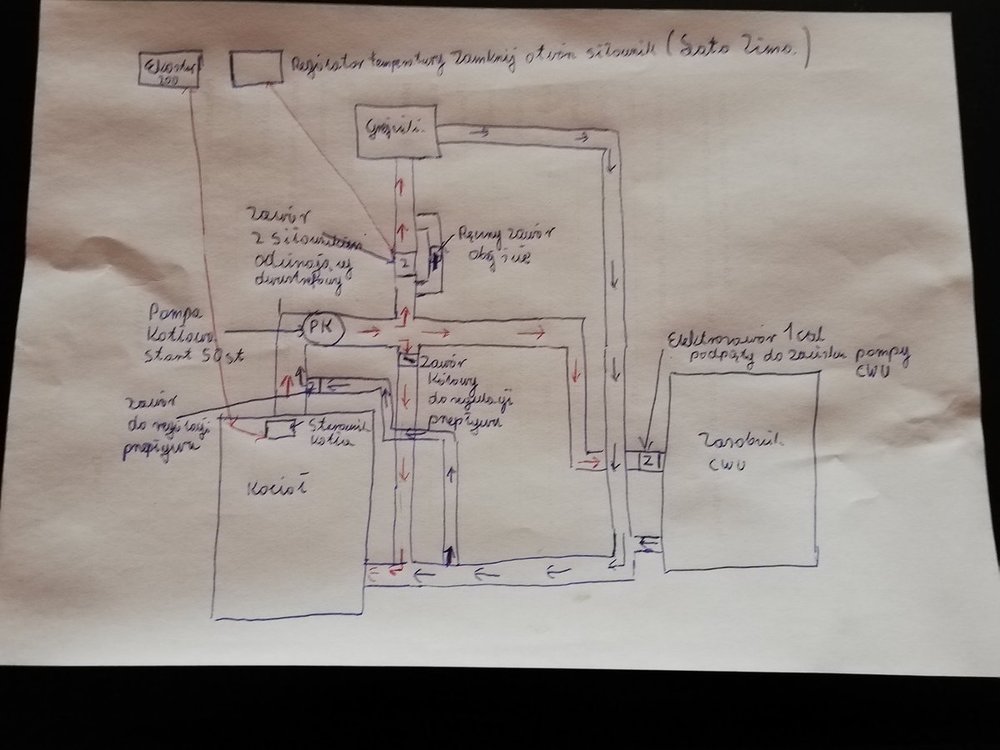 Ekoster
200
Regulator temperatury zamknij otwórz siłownik (Lato Zima.)
Grzejniki.
Zawór
z siłownikiem
odcinający
dwustrefowy
2
Ręczny zawór
obejście
Pompa
Kotłowa
Start 50st
PK
Elektrozawór 1cal
podpięty do zacisku pompy
CWU
Zawór
kątowy
do regulacji
przepływu
Zawór
do regulacji
przepływu
Sterownik
kotła
Kocioł
Z1
Zasobnik
CWU